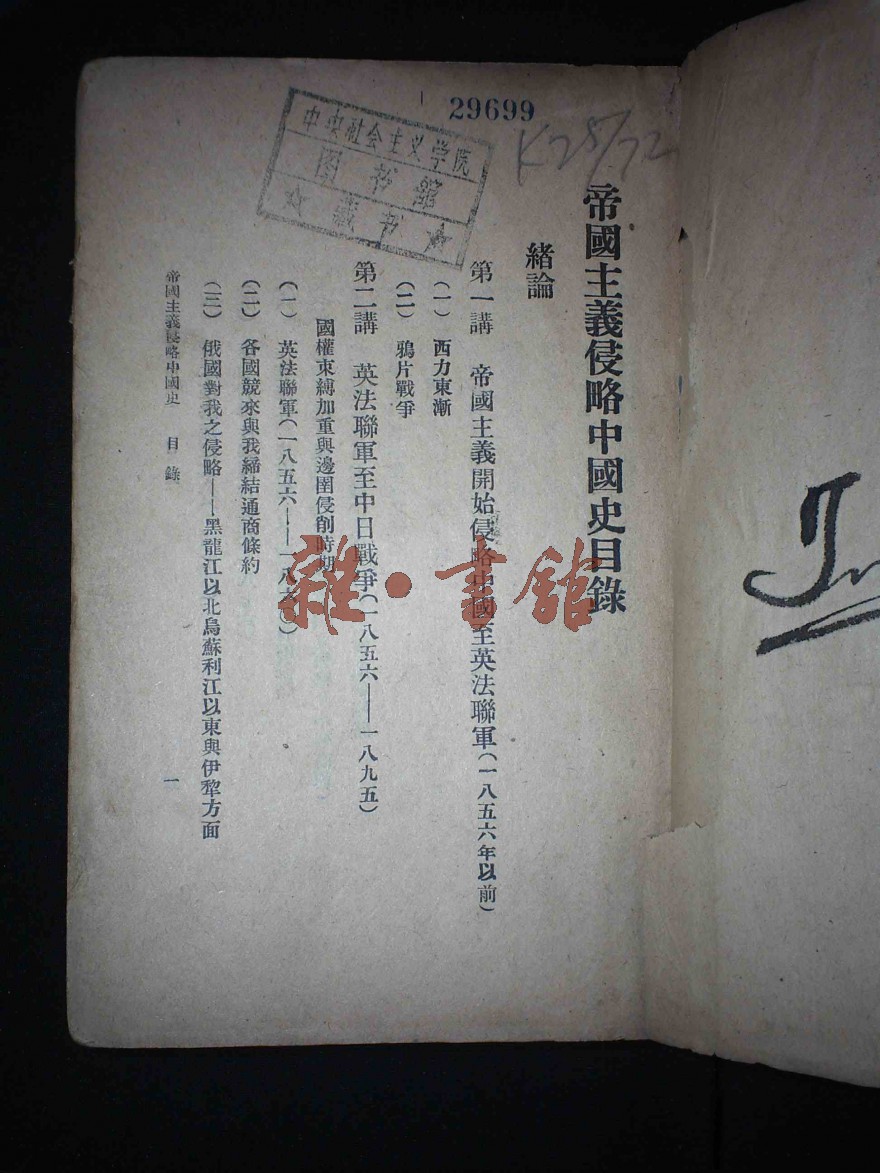 29699
K28/72
中央社会主义学院
图书馆
☆藏书☆
帝國主義侵略中國史目錄
緒論
第一講　帝國主義開始侵略中國至英法聯軍(一八五六年以前)
(一)　西力東漸
(二)　鴉片戰爭
第二講　英法聯軍至中日戰爭(一八五六——一八九五)
國權束縛加重與邊圉侵削時期
(一)　英法聯軍(一八五六——一八六〇)
(二)　各國競來與我締結通商條約
(三)　俄國對我之侵略——黑龍江以北烏蘇利江以東與伊犂方面
帝國主義侵略中國史　目錄　一
雜·書館